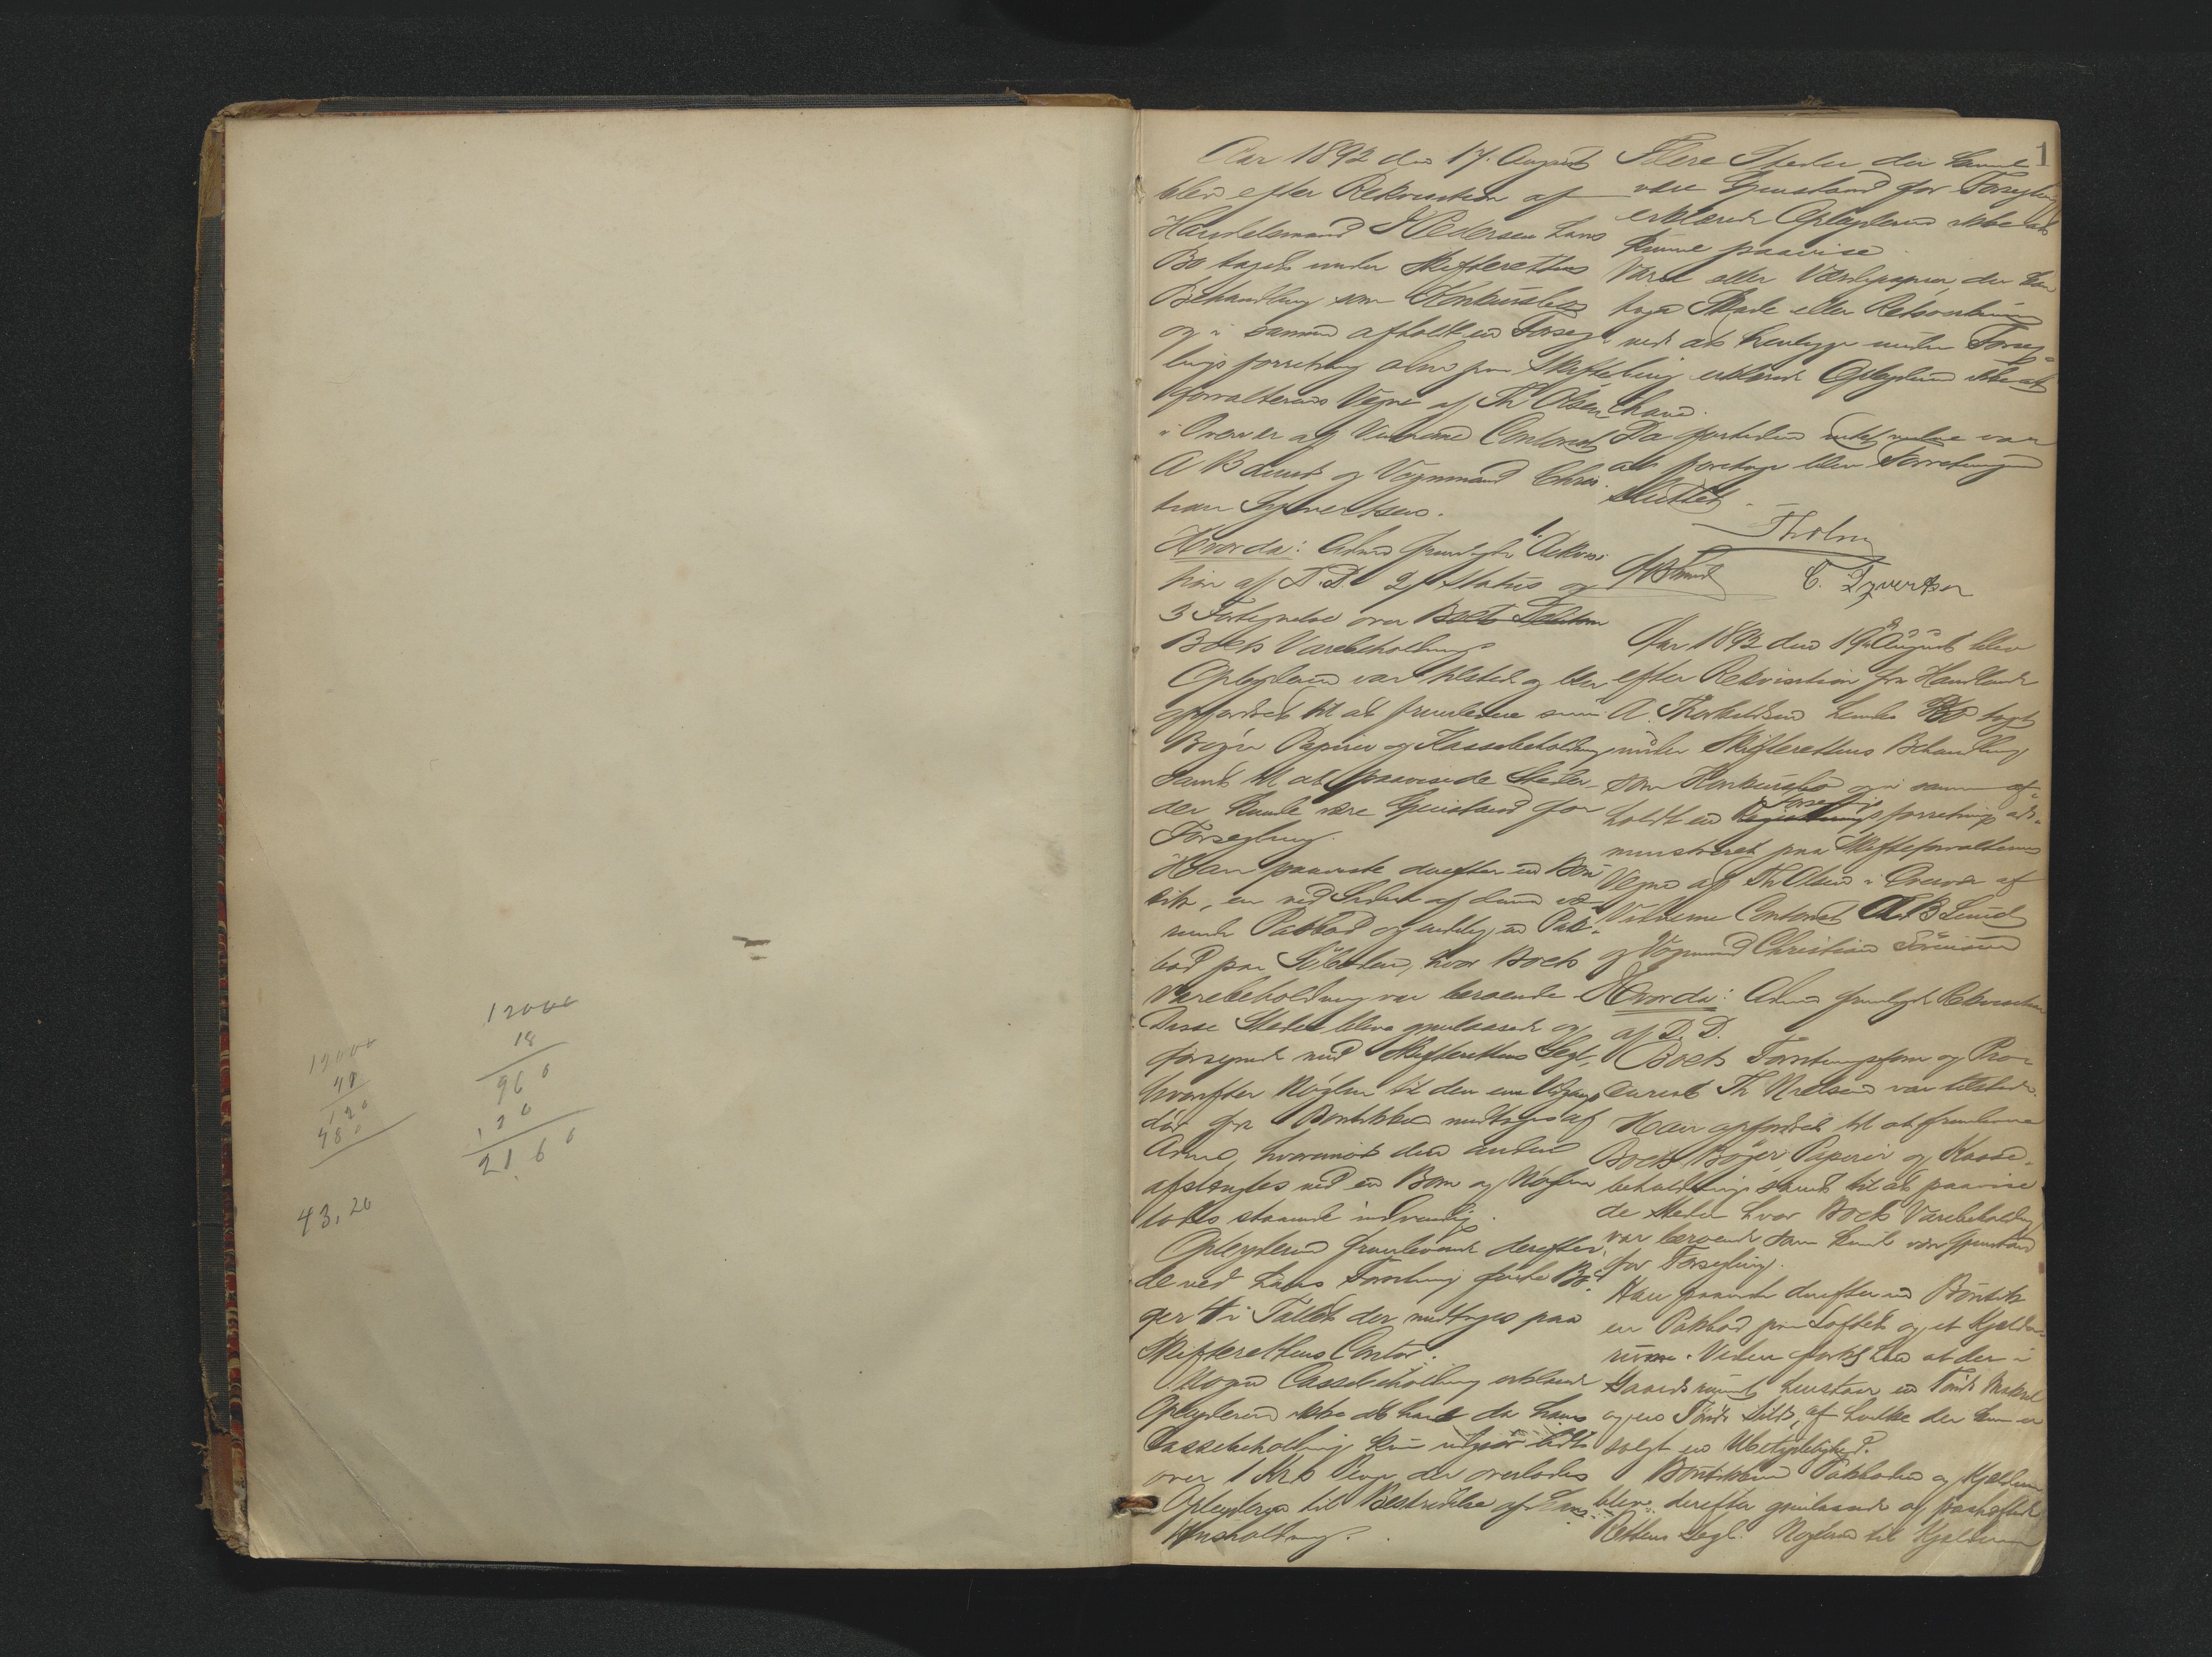 12000
48
120
480
43,20
12000
18
960
120
2160
1
Aar 1892 den 17. August
blev efter Rekvisition af
Handelsmand Pedersen hans
Bo taget under Skifterettens
Behandling som Konkursbo
og i samme afholdt en Forseg-
lingsforretning adm paa Skifte
forvalterens Vegne af Th Olsen
i Overvær af Vidnerne Contorist
A B Lund og Vognmand Chris-
tian Syvertsen.
Hvorda: Adms fremlagde 1, Rekvisi
tion af D.D. 2, Status og
3 Fortegnelse over Boets
Boets Varebeholdning
Opbyderen var tilstede og blev
opfordret til at fremlevere sine
Bøger Papirer og Kassebeholdning
samt til at paavise de Steder
der kunde være Gjenstand for
Forsegling.
Han paaviste derefter en Bou
tik, en ved Siden af denne væ
rende Pakbod og endelig en Pak-
bod paa Söboden, hvor Boets
Varebeholdning var beroende
Disse Steder bleve gjenlaasede og
forsynede med Skifterettens Segl,
hvorefter Nöglen til den ene Udgangs
dör fra Boutikken modtoges af
Adms, hvorimod den anden
afstængtes ved en Bom og Nöglen
lodes staaende indvendig.
Opbyderen fremleverede derefter
de ved hans Forretning förte Bö-
ger 4 i Tallet der modtoges paa
Skifterettens Contor.
Nogen Cassebeholdning erklærede
Opbyderen ikke at have da hans
Cassebeholdning kun udgjør lidt
over 1 Kr Penge der overlodes
Opbyderen til Bestridelse af hans
Husholdning.
Flere Steder der kunde
være Gjenstand for Forsegling
erklærede Opbyderen ikke at
kunne paavise
Varer eller Værdipapirer der kan
tage Skade eller
ved at henlægge under Forseg-
ling erklærede Opbyderen ikke at
have.
Da forøvrigt intet var
at foretage blev Forretningen
sluttet
Th Olsen
A B Lund
C. Syvertsen
Aar 1892 den 19de August blev
efter Rekvisition fra Handlende
A. Thorkildsen hendes Bo taget
under Skifterettens Behandling
som Konkursbo og i samme af-
holdt en Forseglingsforretning ad-
ministreret paa Skifteforvalterens
Vegne af Th Olsen i Overvær af
Vidnerne Contorist A B Lund
og Vognmand Christian
Hvorda: Adms fremlagde Rekvisition
af D.D.
Boets Forretningsfører og Pro-
curist Th Nielsen var tilstede.
Han opfordret til at fremlevere
Boets Böger Papirer og Kasse-
beholdning samt til at paavise
de Steder hvor Boets Varebeholdning
var beroende som kunde være Gjenstand
for Forsegling.
Han paaviste derefter en Boutik
en Pakbod paa Loftet og et Kjælder-
rum. Videre forklarede han at der i
Gaardsrummet henstaar en Tönde
og en Tönde Sild, af hvilke der kun er
solgt en Ubetydelighed.
Boutikken Pakboden og Kjælderen
blev derefter gjenlaasede og paaheftede
Rettens Segl. Nöglerne til Kjælderen